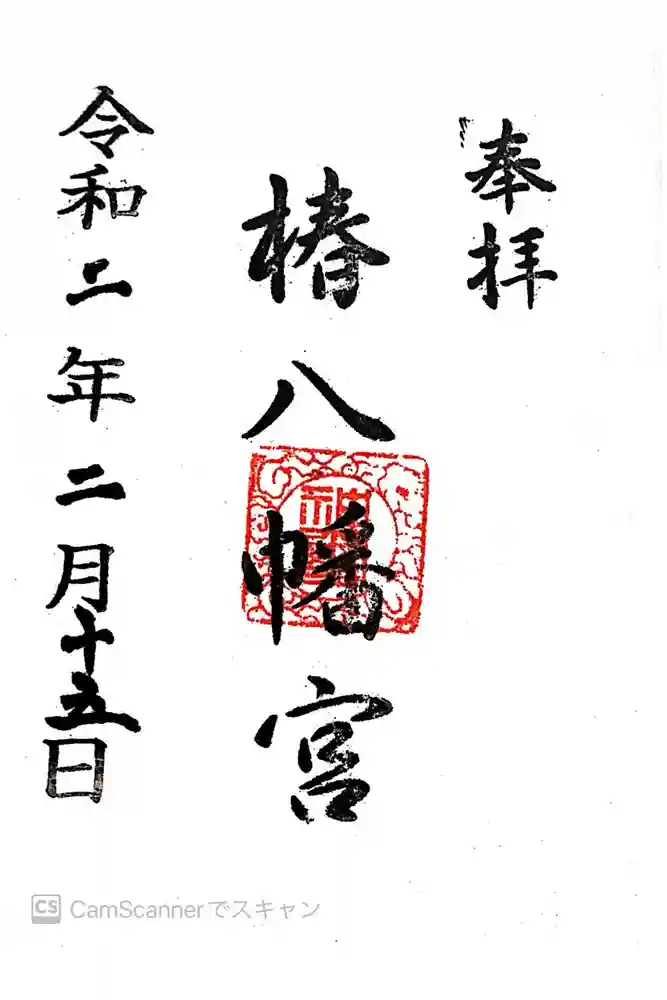 奉拝
椿八幡宮
令和二年二月十五日
CS CamScannerでスキャン